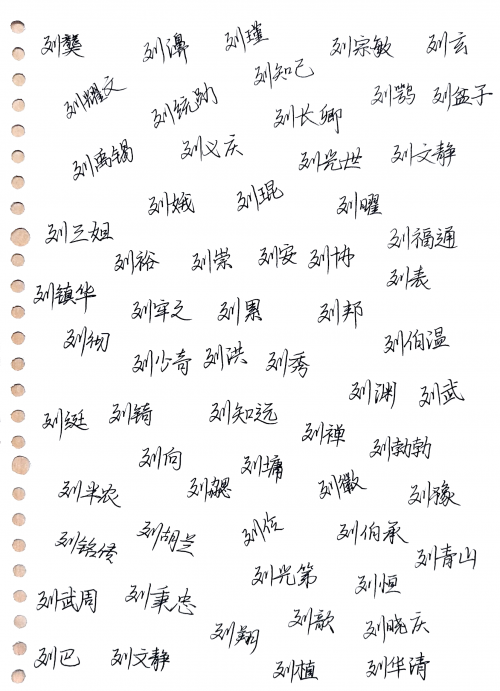 刘龑 刘濞 刘瑾 刘宗敏 刘玄
刘耀文 刘统勋 刘知己 刘长卿 刘鹗 刘盆子
刘禹锡 刘义庆 刘光世 刘文静
刘娥 刘琨 刘曜
刘三姐 刘裕 刘崇 刘安 刘协 刘福通
刘镇华 刘牢之 刘累 刘邦 刘表
刘彻 刘少奇 刘洪 刘秀 刘伯温
刘綎 刘锜 刘知远 刘渊 刘武
刘向 刘墉 刘禅 刘勃勃
刘半农 刘勰 刘徽 刘豫
刘铭传 刘胡兰 刘位 刘伯承 刘青山
刘武周 刘秉忠 刘光第 刘恒
刘翔 刘歆 刘晓庆
刘巴 刘文静 刘植 刘华清